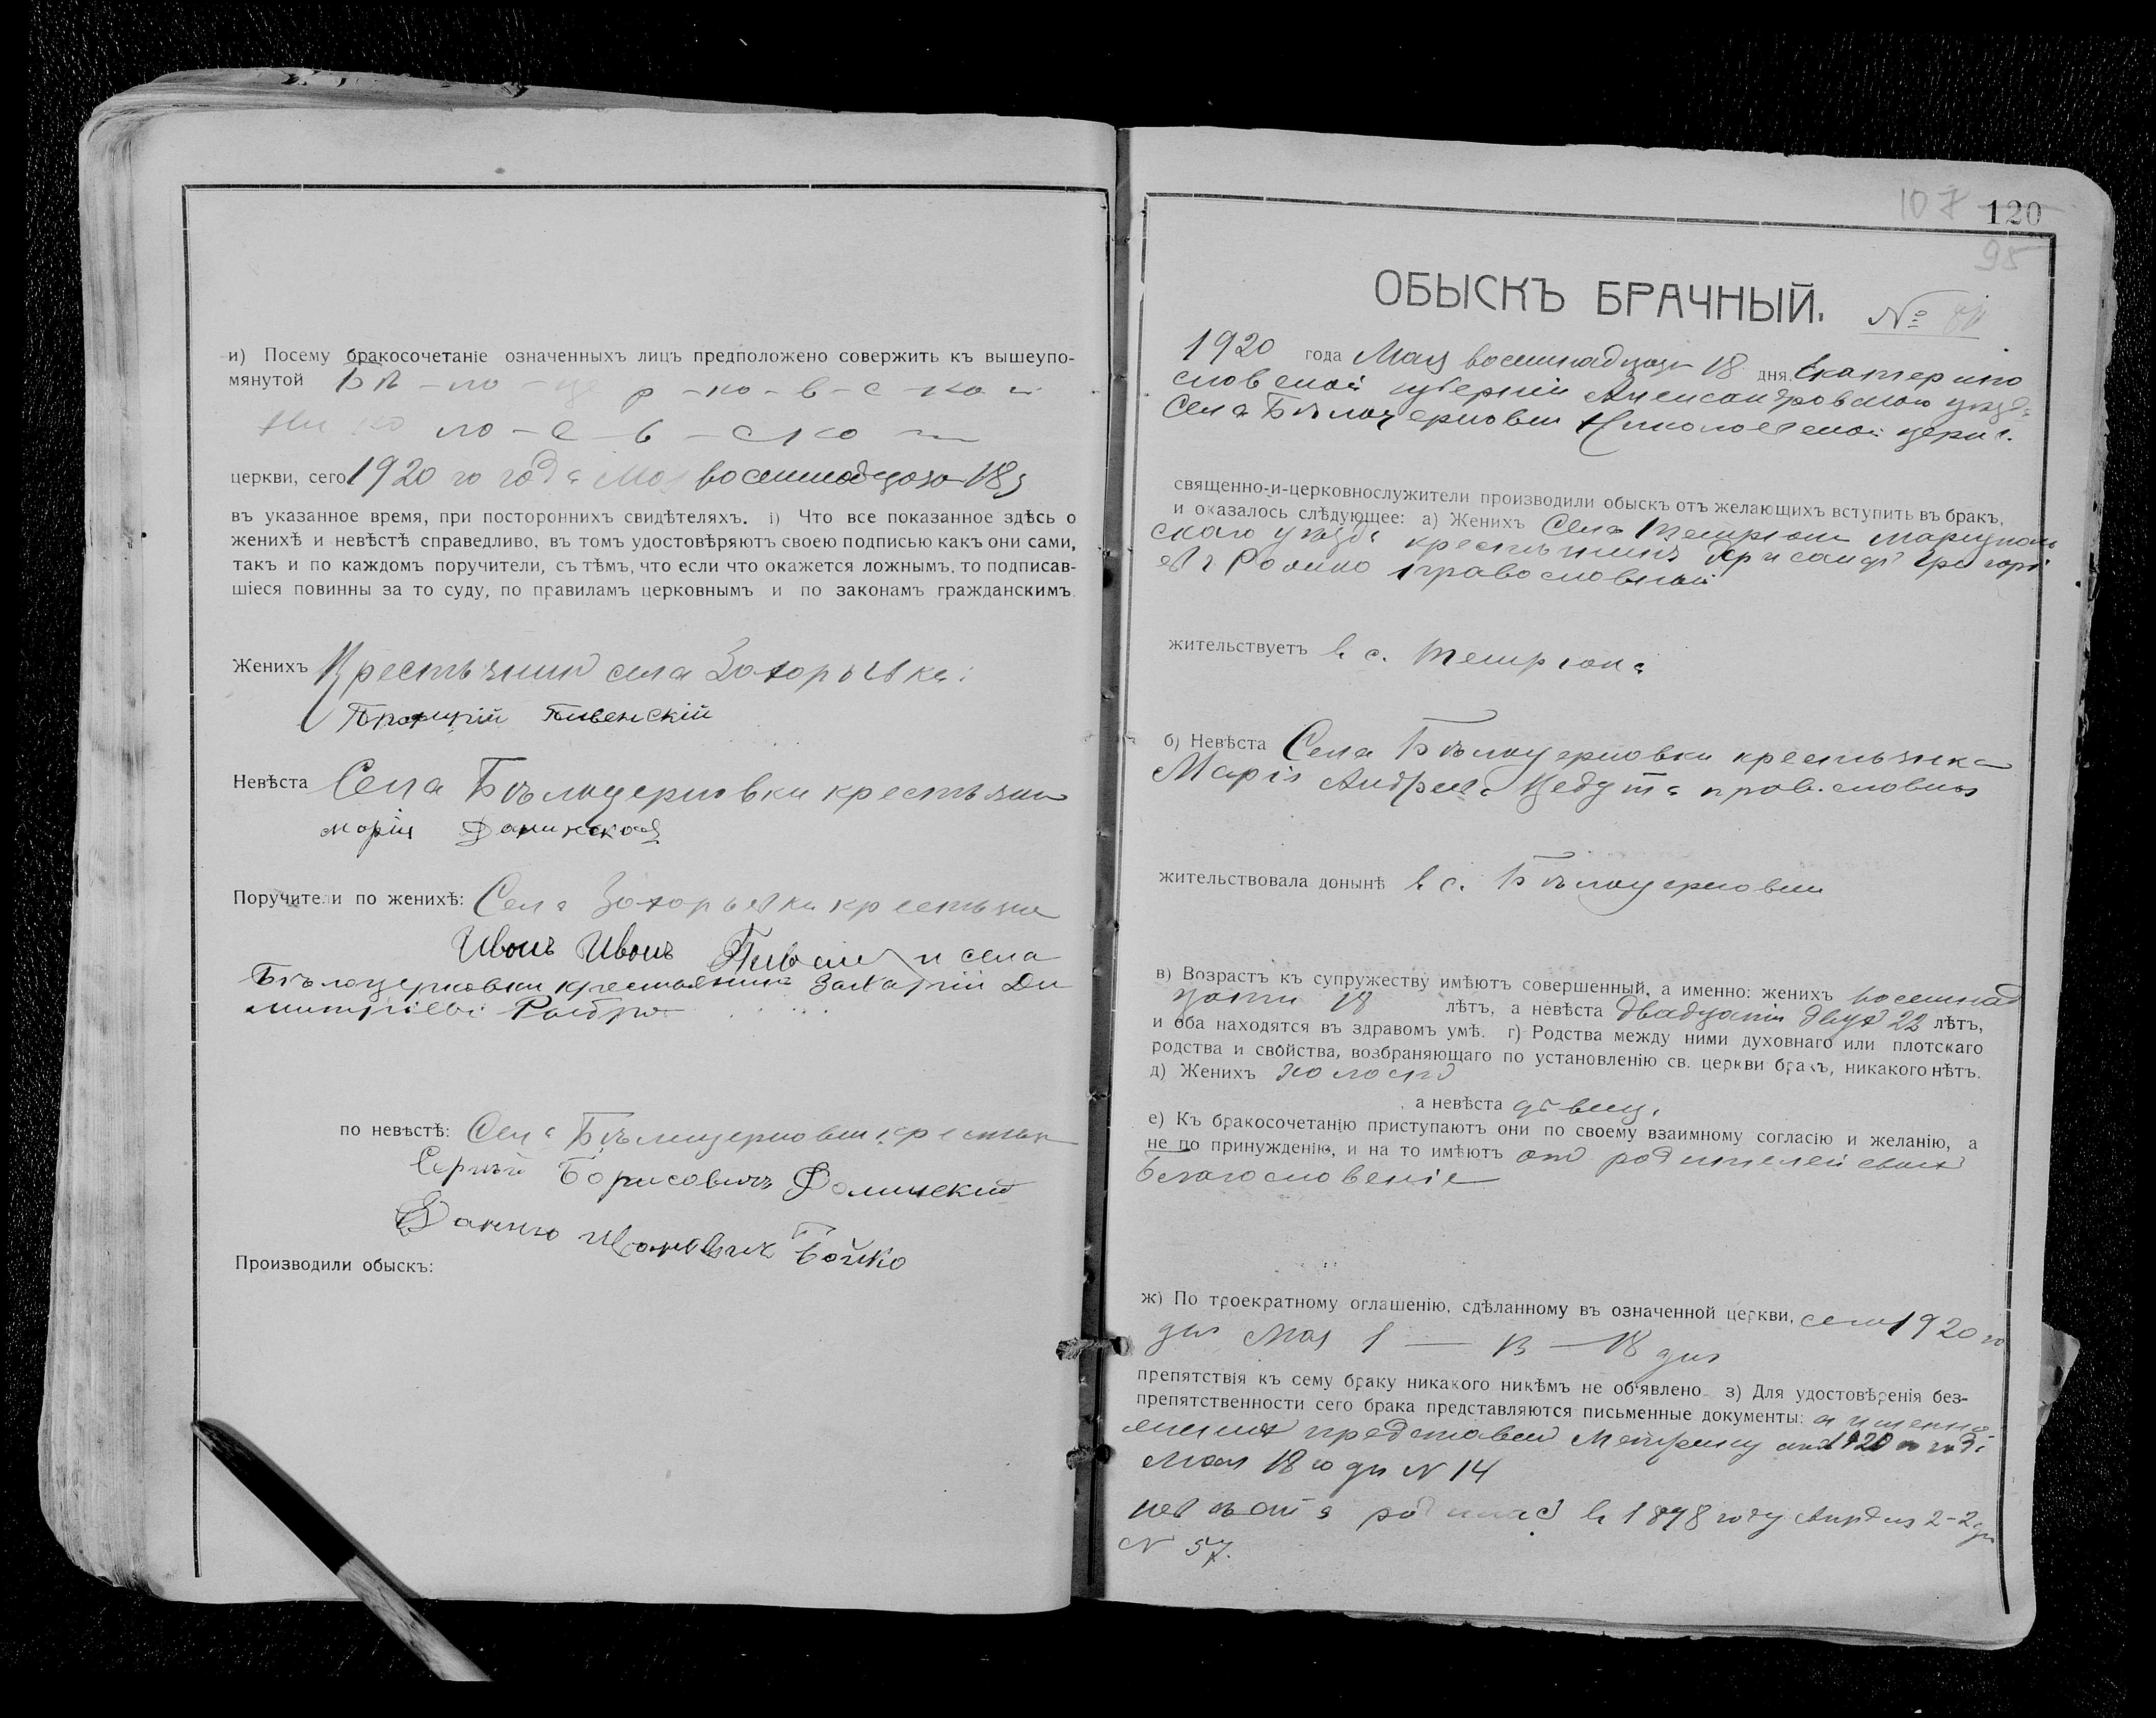 и) Посему бракосочетаніе означенныхъ лицъ предположено совержить къ вышеупо-
мянутой Бѣ-ло-це р-ко-в-с-ко й
Ни ко ло-е-в-ско й
церкви, сего 1920 го года Мая восемнадцаго 18
въ указанное время, при постороннихъ свидѣтеляхъ. i) Что все показанное здѣсь о
женихѣ и невѣстѣ справедливо, въ томъ удостовѣряютъ своею подписью какъ они сами,
такъ и по каждомъ поручители, съ тѣмъ, что если что окажется ложнымъ, то подписав-
шіеся повинны за то суду, по правиламъ церковнымъ и по законамъ гражданскимъ.
Женихъ Крестьянин села Захорьевки
Невѣста Села Бѣлоцерковки крестьян
марія
Поручители по женихѣ: Села Захорьевки крестьяне
Иванъ Иванъ и села
Бѣлоцерковки крестьянинъ Захарій Ди
митріевъ
по невѣстѣ: Села Бѣлоцерковки крестьян
Сергѣй Борисовичъ Долинский
Данило Ивановичъ Бойко
Производили обыскъ:
107 120
95
ОБЫСКЪ БРАЧНЫЙ. №
1920 года Мая восемнадцаго 18 дня. Екатерино
славской губерніи Александровскаго уѣзда
Села Бѣлоцерковки Николаевской церкви
священно-и-церковнослужители производили обыскъ отъ желающихъ вступить въ бракъ,
и оказалось слѣдующее: а) Женихъ Села Темрюка Маріуполь
скаго уѣзда крестьянинъ Григорі
евъ православный
жительствуетъ в с. Темрюка
б) Невѣста Села Бѣлоцерковки крестьянка
Марія Андреева православная
жительствовала донынѣ в с. Бѣлоцерковки
в) Возрастъ къ супружеству имѣютъ совершенный, а именно: женихъ восемнад
цати 18 лѣтъ, а невѣста двадцати двух 22 лѣтъ,
и оба находятся въ здравомъ умѣ. г) Родства между ними духовнаго или плотскаго
родства и свойства, возбраняющаго по установленію св. церкви бракъ, никакого нѣтъ.
д) Женихъ холост
а невѣста дѣвица
е) Къ бракосочетанію приступаютъ они по своему взаимному согласію и желанію, а
не по принужденію, и на то имѣютъ от родителей своих
благословеніе
ж) По троекратному оглашенію, сдѣланному въ означенной церкви, сего 1920 го
дня Мая 18 дня
препятствія къ сему браку никакого никѣмъ не об'явлено з) Для удостовѣренія без-
препятственности сего брака представляются письменные документы: а именно
жених представил Метрику от 1920 го года
Мая 18 го дня N 14
невѣста родилась в 1898 году Апрѣля 2-2 дня
N 57.